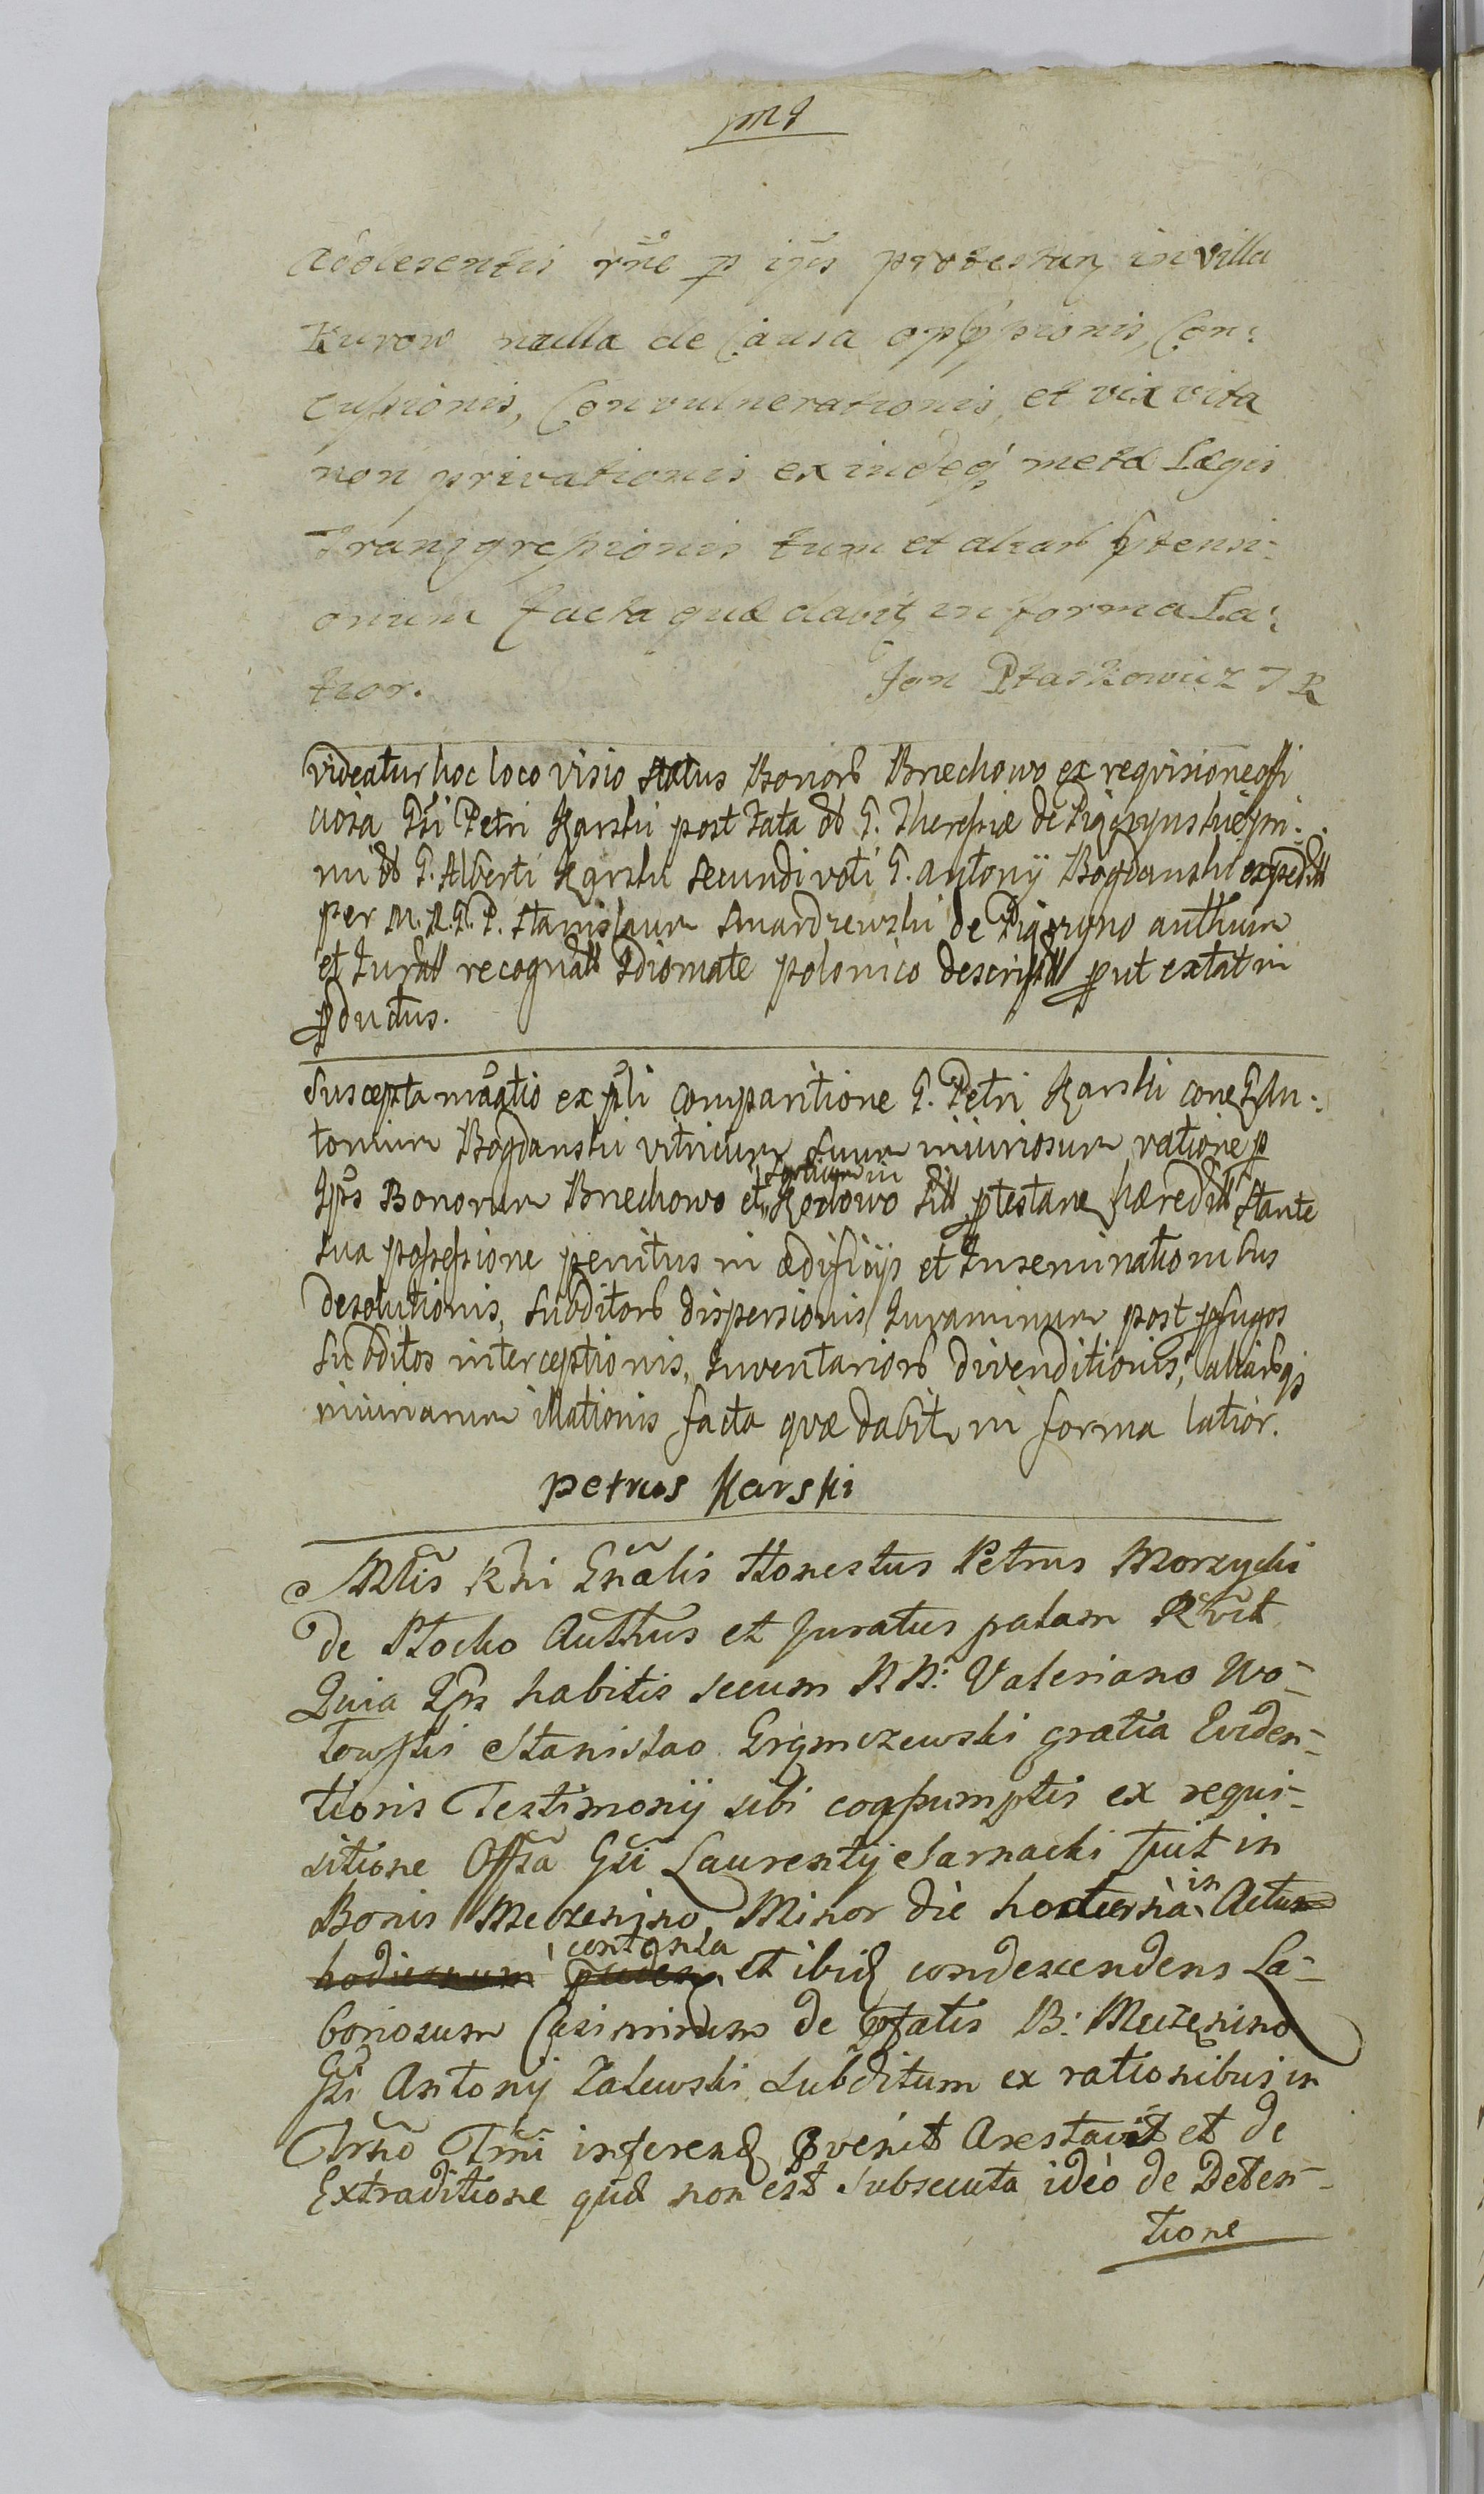 adolescentis rñe p ijus protestan in villa
Kurow nulla de Causa opprsionis, Con:
cussionis, Convulnerationis, et vix vita
non privationis ex indeq metæ Legis
Transgressionis tum et aliar prtensi-
onum facta quæ dabit in forma La:
tior. Jon Ptaskowicz J R
videatur hoc loco visio status Bonor Brzechowo ex requisione offi
ciosa Gsi Petri Karski post fata G. Theresiæ de pri:
mi G. Alberti Karski secundi voti G. Antonij Bogdanski expedit
per M. R. G. P. Stanislaum Smardzewski de authum
et Jurat recognat Idiomate polonico descript prout extat in
productus.
Suscepta mãtio ex psli comparitione G. Petri Karski cone G An:
tonium Bogdanski vitricum suum injuriosum ratione p
Ips Bonorum Brzechowo et Koziowo sitt ptestane hæredit stante
sua possessione penitus in ædificijs et Inseminationibus
desolutionis, subditor dispersionis, Juraminum post profugos
subditos interceptionis, Inventarior divenditionis, aliarq
injuriarum illationis facta quæ dabit in forma latior.
petrus Karski
Mtis Rni Gnãlis Honestus Petrus Morzycki
de Plocko Authus et Juratus palam Rvit
Quia Ips habitis secum NN: Valeriano Wo-
towski Stanislao Grzmczewski gratia Eviden-
tioris Testimonij sibi coassumptis ex requi-
sitione Offsa Gsi Laurentij Sarnacki fuit in
Bonis Meczenino Minor die hodierna in Actum
hodiernum contenta et ibid condescendens La-
boriosum Casimirum de pfatis B: Meczenino
Gsi Antonij Zalewski subditum ex rationibus in
Trño Trni inferend pvenit Arestavit et de
Extraditione quæ non est subsecuta ideo de Deten-
tione